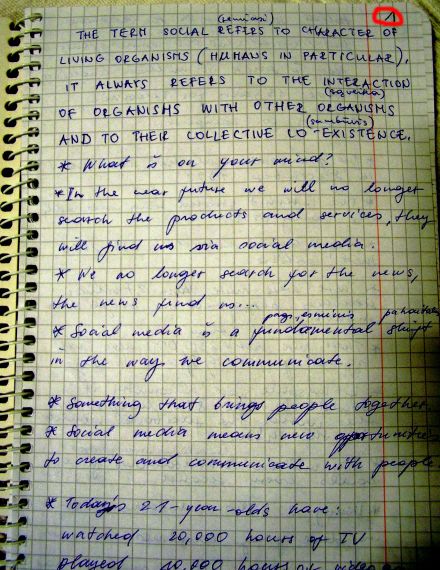 1
(remiasi)
THE TERM SOCIAL REFERS TO CHARACTER OF
LIVING ORGANISMS (HUMANS IN PARTICULAR).
IT ALWAYS REFERS TO THE INTERACTION
(sąveika)
OF ORGANISMS WITH OTHER ORGANISMS
(sambūvis)
AND TO THEIR COLLECTIVE CO-EXISTENCE.
* What is on your mind?
* In the near future we will no longer
search the products and services, they
will find us via social media.
* We no longer search for the news,
the news find us...
* Social media is a fundamental shift
in the way we communicate.
* Something that brings people together.
* Social media means new opportunities
to create and communicate with people
* Today's 21-year-olds have:
watched 20,000 hours of TV
played 10,000 hours of video